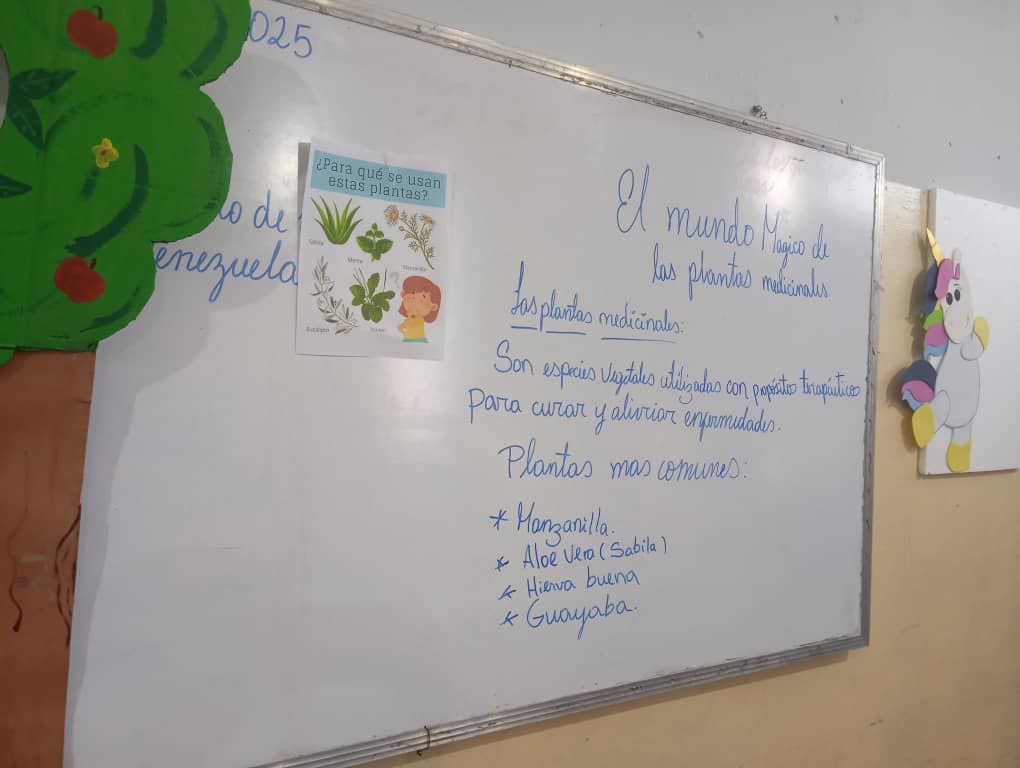 025
o de
enezuela
¿Para qué se usan
estas plantas?
Sábila
Menta
Manzanilla
Eucalipto
El mundo Magico de
las plantas medicinales
Las plantas medicinales:
Son especies vegetales utilizadas con propósitos terapéuticos
para curar y aliviar enfermedades.
Plantas mas comunes:
* Manzanilla.
* Aloe vera (Sabila)
* Hierva buena
* Guayaba.